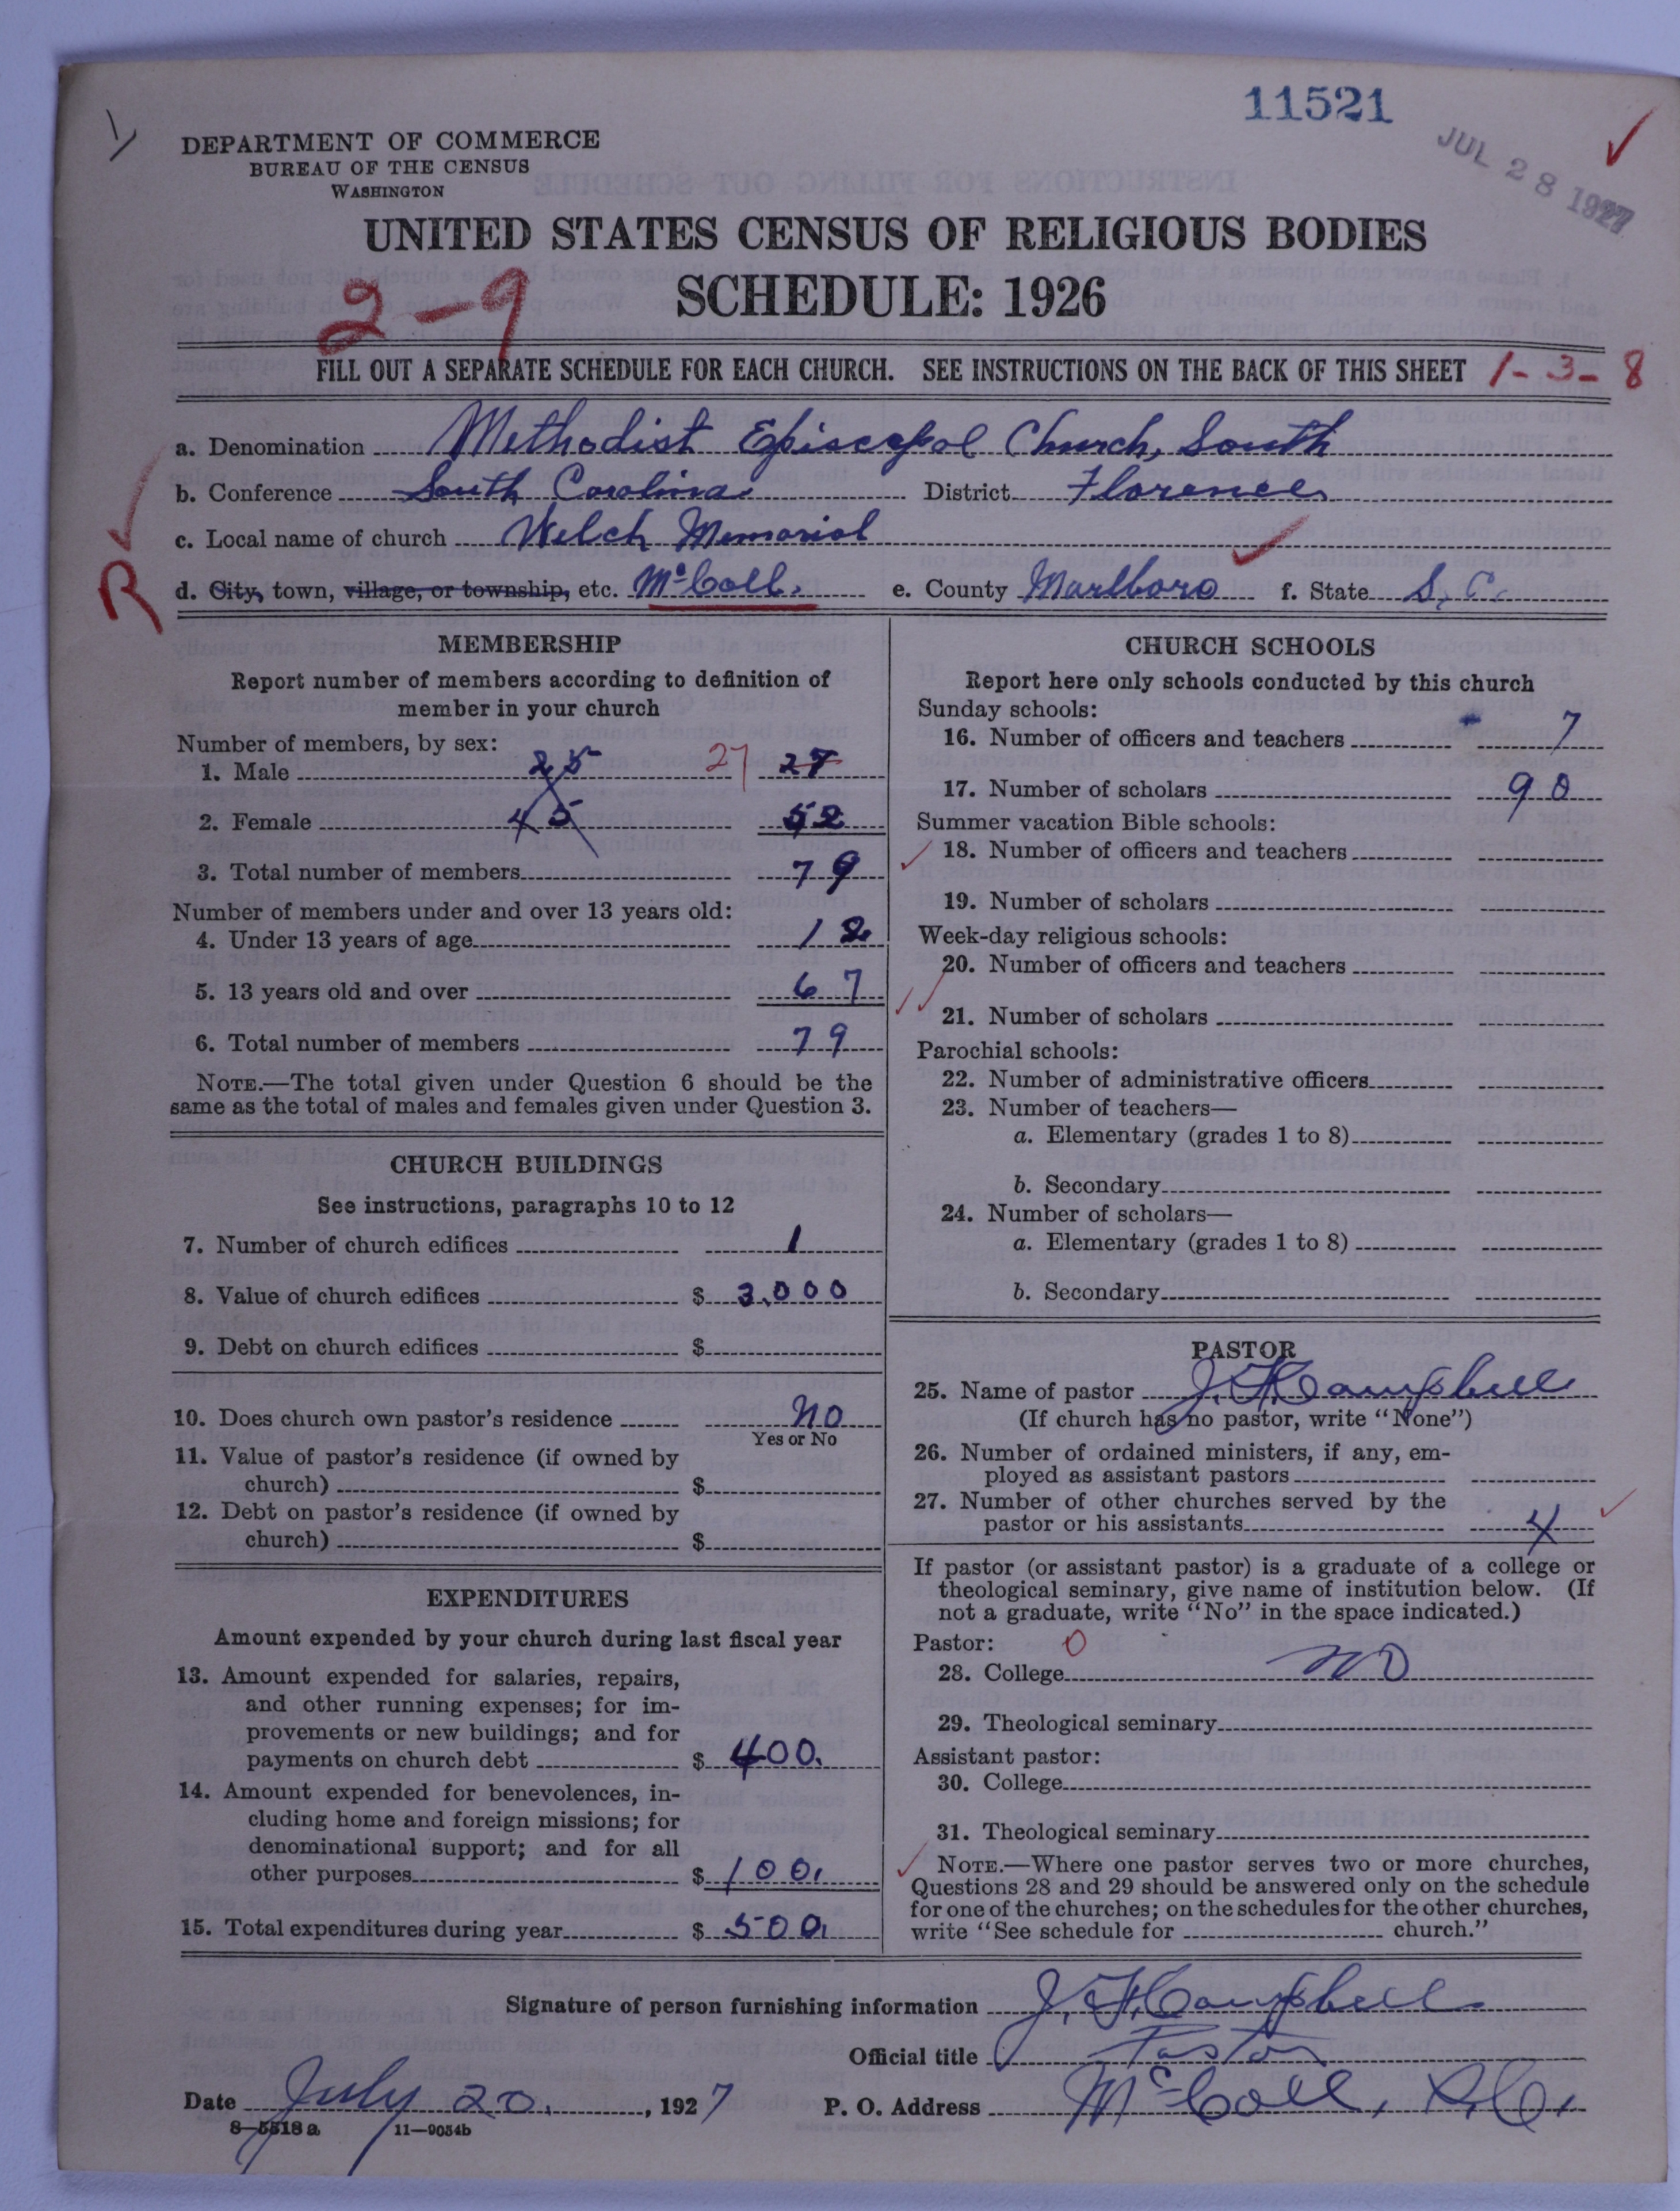 11521
JUL 28 1927
DEPARTMENT OF COMMERCE
BUREAU OF THE CENSUS
WASHINGTON
UNITED STATES CENSUS OF RELIGIOUS BODIES
SCHEDULE: 1926
2-9
FILL OUT A SEPARATE SCHEDULE FOR EACH CHURCH. SEE INSTRUCTIONS ON THE BACK OF THIS SHEET 1-3-8
a. Denomination Methodist Episcopal Church, South
b. Conference South Carolina District Florence
c. Local name of church Welch Memorial
R
d. City, town, village, or township, etc. McColl. e. County Marlboro f. State S. C.
MEMBERSHIP
Report number of members according to definition of
member in your church
Number of members, by sex:
1. Male 25 27 27
2. Female 45 52
3. Total number of members 79
Number of members under and over 13 years old:
4. Under 13 years of age 12
5. 13 years old and over 67
6. Total number of members 79
NOTE.—The total given under Question 6 should be the
same as the total of males and females given under Question 3.
CHURCH BUILDINGS
See instructions, paragraphs 10 to 12
7. Number of church edifices 1
8. Value of church edifices $ 3,000
9. Debt on church edifices $
10. Does church own pastor's residence no
Yes or No
11. Value of pastor's residence (if owned by
church) $
12. Debt on pastor's residence (if owned by
church) $
EXPENDITURES
Amount expended by your church during last fiscal year
13. Amount expended for salaries, repairs,
and other running expenses; for im-
provements or new buildings; and for
payments on church debt $ 400.
14. Amount expended for benevolences, in-
cluding home and foreign missions; for
denominational support; and for all
other purposes $ 100.
15. Total expenditures during year $ 500.
CHURCH SCHOOLS
Report here only schools conducted by this church
Sunday schools:
16. Number of officers and teachers 7
17. Number of scholars 90
Summer vacation Bible schools:
18. Number of officers and teachers
19. Number of scholars
Week-day religious schools:
20. Number of officers and teachers
21. Number of scholars
Parochial schools:
22. Number of administrative officers
23. Number of teachers—
a. Elementary (grades 1 to 8)
b. Secondary
24. Number of scholars—
a. Elementary (grades 1 to 8)
b. Secondary
PASTOR
25. Name of pastor J. F. Campbell
(If church has no pastor, write "None")
26. Number of ordained ministers, if any, em-
ployed as assistant pastors
27. Number of other churches served by the
pastor or his assistants 4
If pastor (or assistant pastor) is a graduate of a college or
theological seminary, give name of institution below. (If
not a graduate, write "No" in the space indicated.)
Pastor: 0
28. College no
29. Theological seminary
Assistant pastor:
30. College
31. Theological seminary
NOTE.—Where one pastor serves two or more churches,
Questions 28 and 29 should be answered only on the schedule
for one of the churches; on the schedules for the other churches,
write "See schedule for church."
Signature of person furnishing information J. F. Campbell
Official title Pastor
Date July 20, 1927 P. O. Address McColl, S.C.
8-5518a 11-9034b